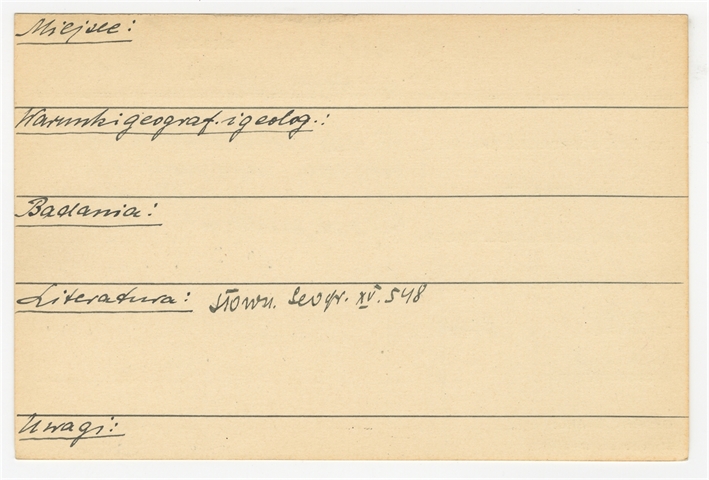 Miejsce:
Warunki geograf. i geolog.:
Badania:
Literatura: Słown. Geogr. XV. 548
Uwagi: